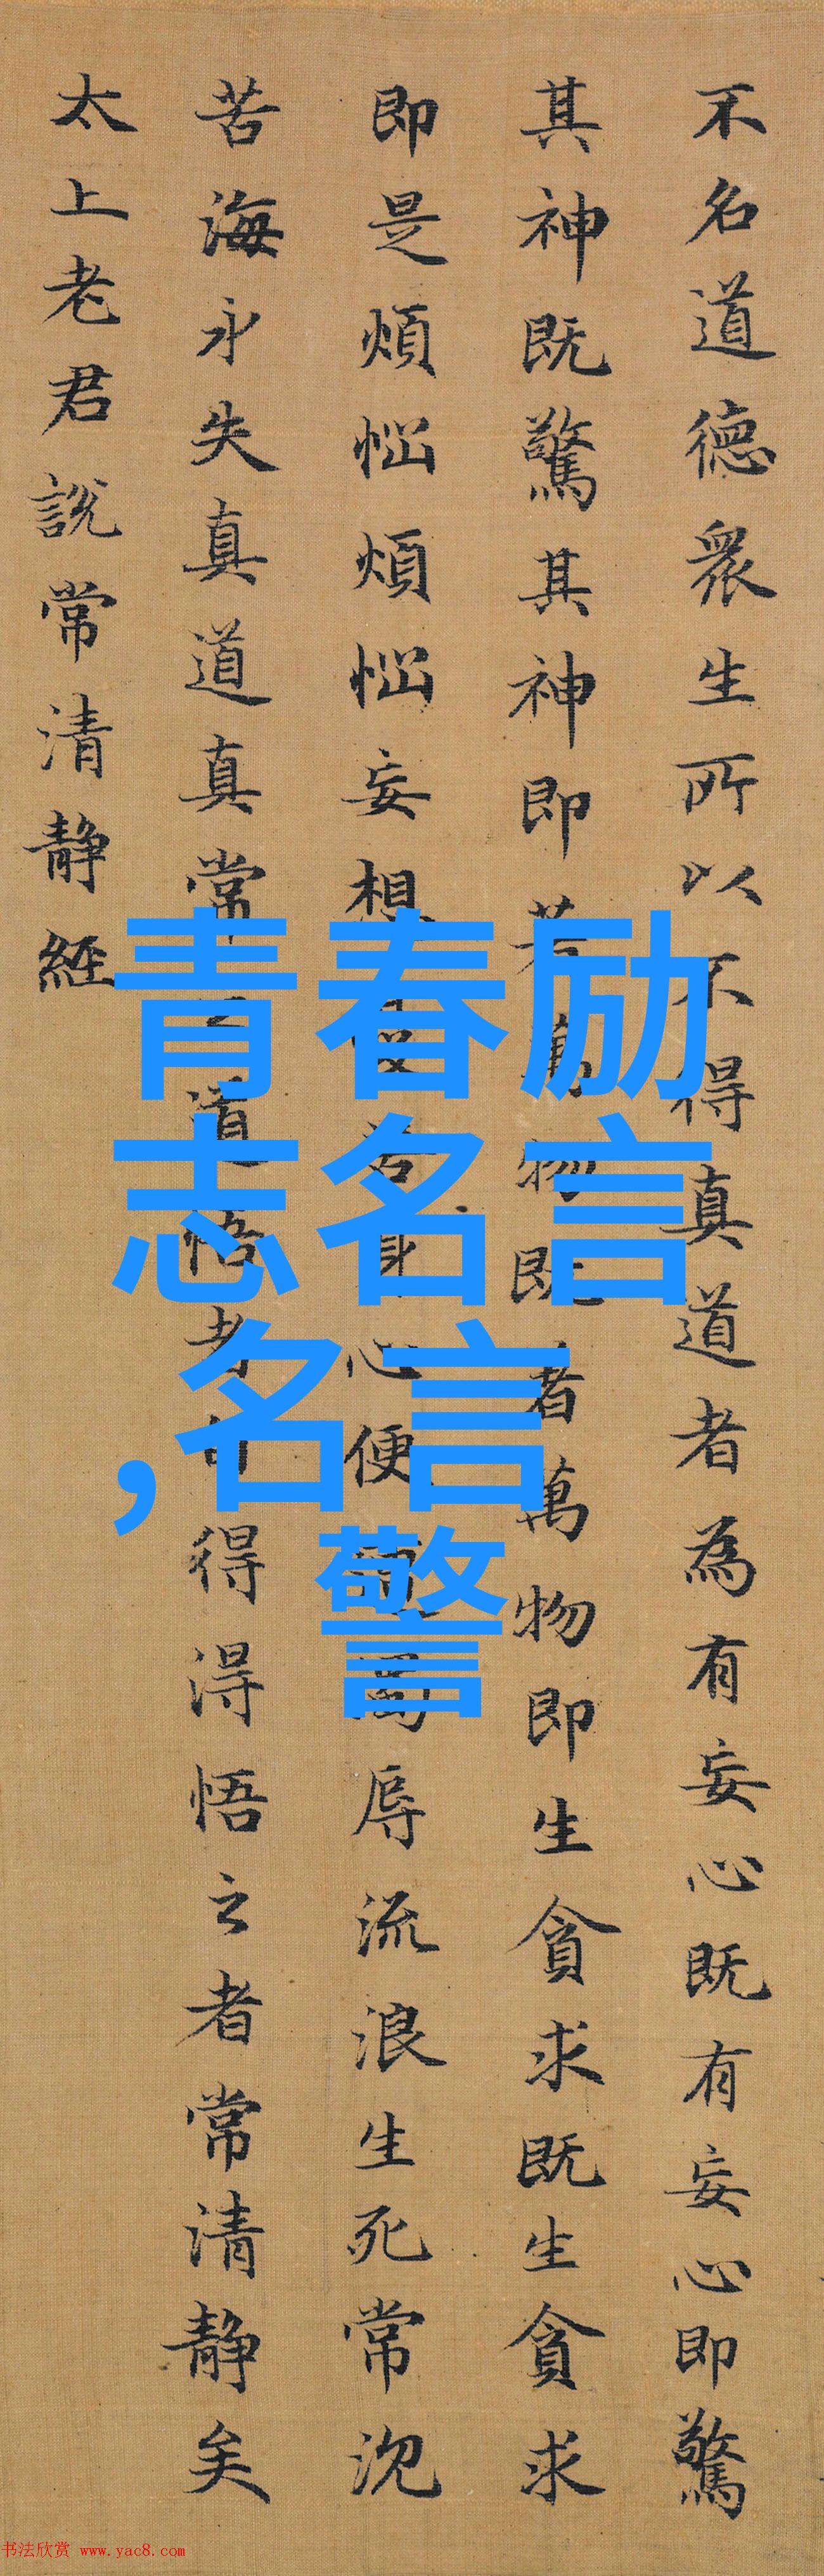 不名道德眾生所以不得真道者為有妄心既有妄心即驚
其神既驚其神即著萬物既著萬物即生貪求既生貪求
即是煩惱煩惱妄想苦身心便辱流浪生死常沉
苦海永失真道真常道悟者得淂悟之者常清靜矣
太上老君說常清靜經
青春励
志名言
,名言
警
书法欣赏 www.yac8.com